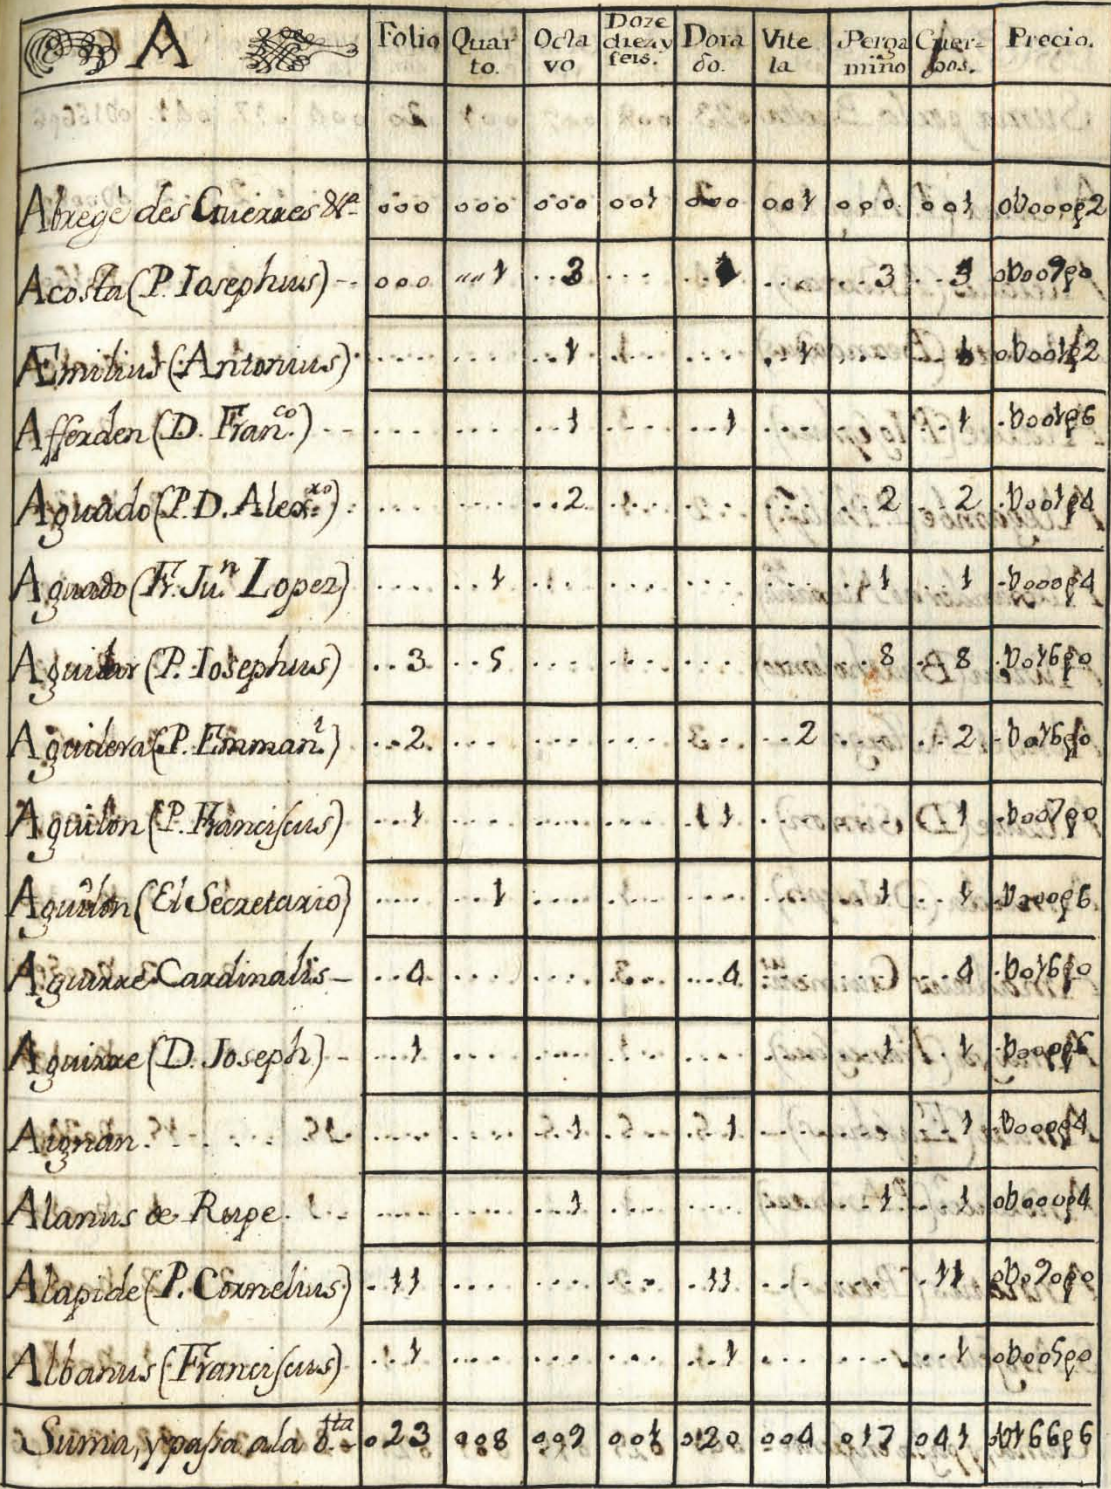 A Folio Quarto. Octavo Doze diezy seis. Dorado. Vitela Pergamino Cuerpos. Precio.
Abregé des Guerres &ª. 000 000 000 001 000 001 000 001
Acosta (P. Iosephus) 000 1 3 3
Æmilius (Antonius) 1 1 1
Afferden (D. Franco.) 1 1 1
Aguado (P. D. Alexxo.) 2 2 2
Aguado (Fr. Jun. Lopez) 1 1 1
Aguilar (P. Iosephus) 3 5 8 8
Aguilera (P. Emmanl.) 2 2 2
Aguilon (P. Franciscus) 1 1 1
Aguilon (El Secretario) 1 1 1
Aguirre Cardinalis 4 4 4
Aguirre (D. Joseph) 1 1 1
Aignan. 1 1 1
Alanus de Rupe. 1 1 1
Alapide (P. Cornelius) 11 11 11
Albanus (Franciscus) 1 1 1
Suma, y passa ala bta. 023 008 009 001 020 004 017 041